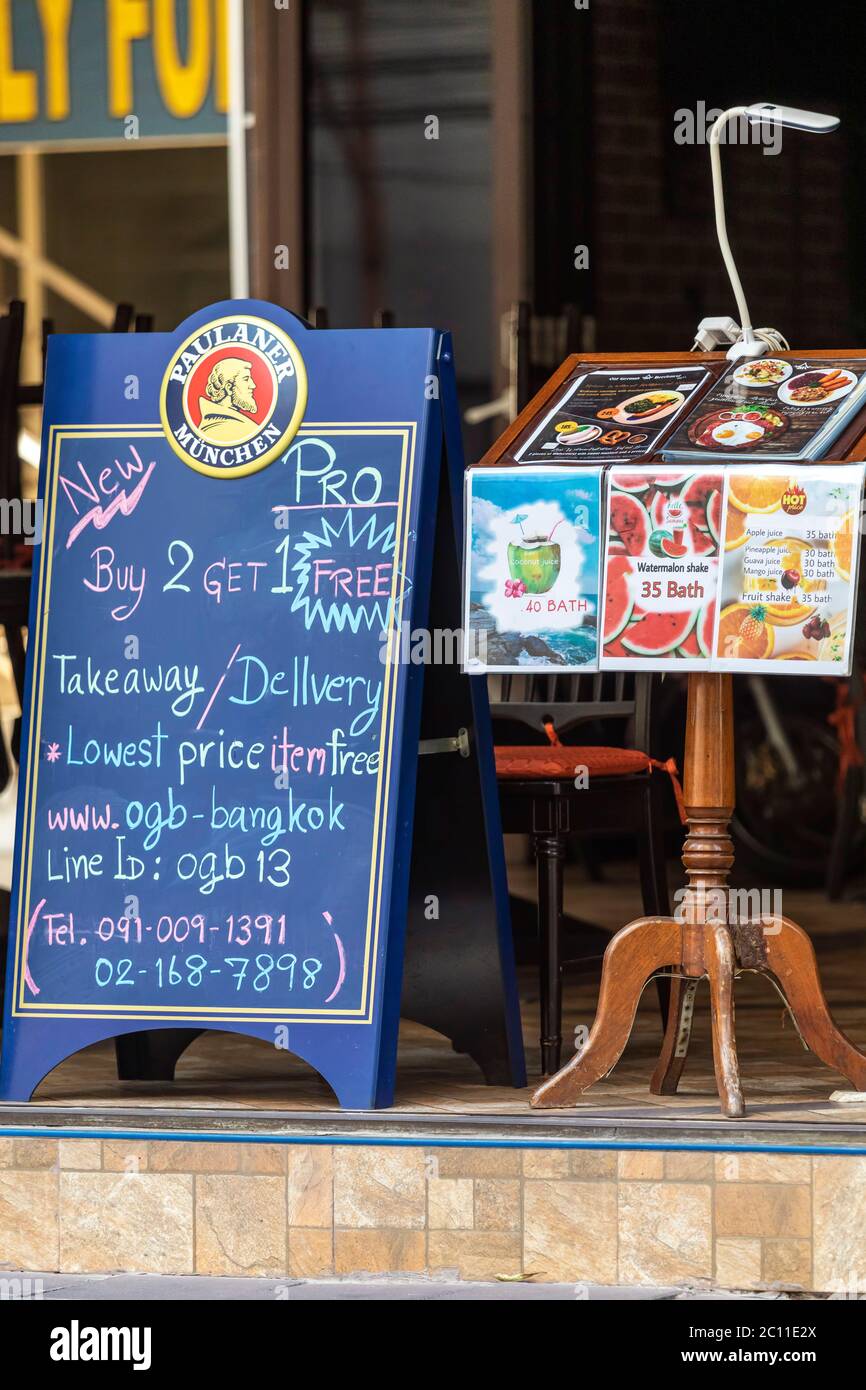 LY FO
PAULANER
MÜNCHEN
New
PRO
Buy 2 GET 1 FREE
Takeaway / Dellvery
*Lowest price item free
www.ogb-bangkok
Line ID: ogb 13
(Tel. 091-009-1391
02-168-7898)
coconut juice
40 BATH
Hello
Summer
Watermalon shake
35 Bath
HOT
price
Apple juice 35 bath
Pineapple juice 30 bath
Guava juice 30 bath
Mango juice 30 bath
Fruit shake 35 bath
alamy
Image ID: 2C11E2X
www.alamy.com